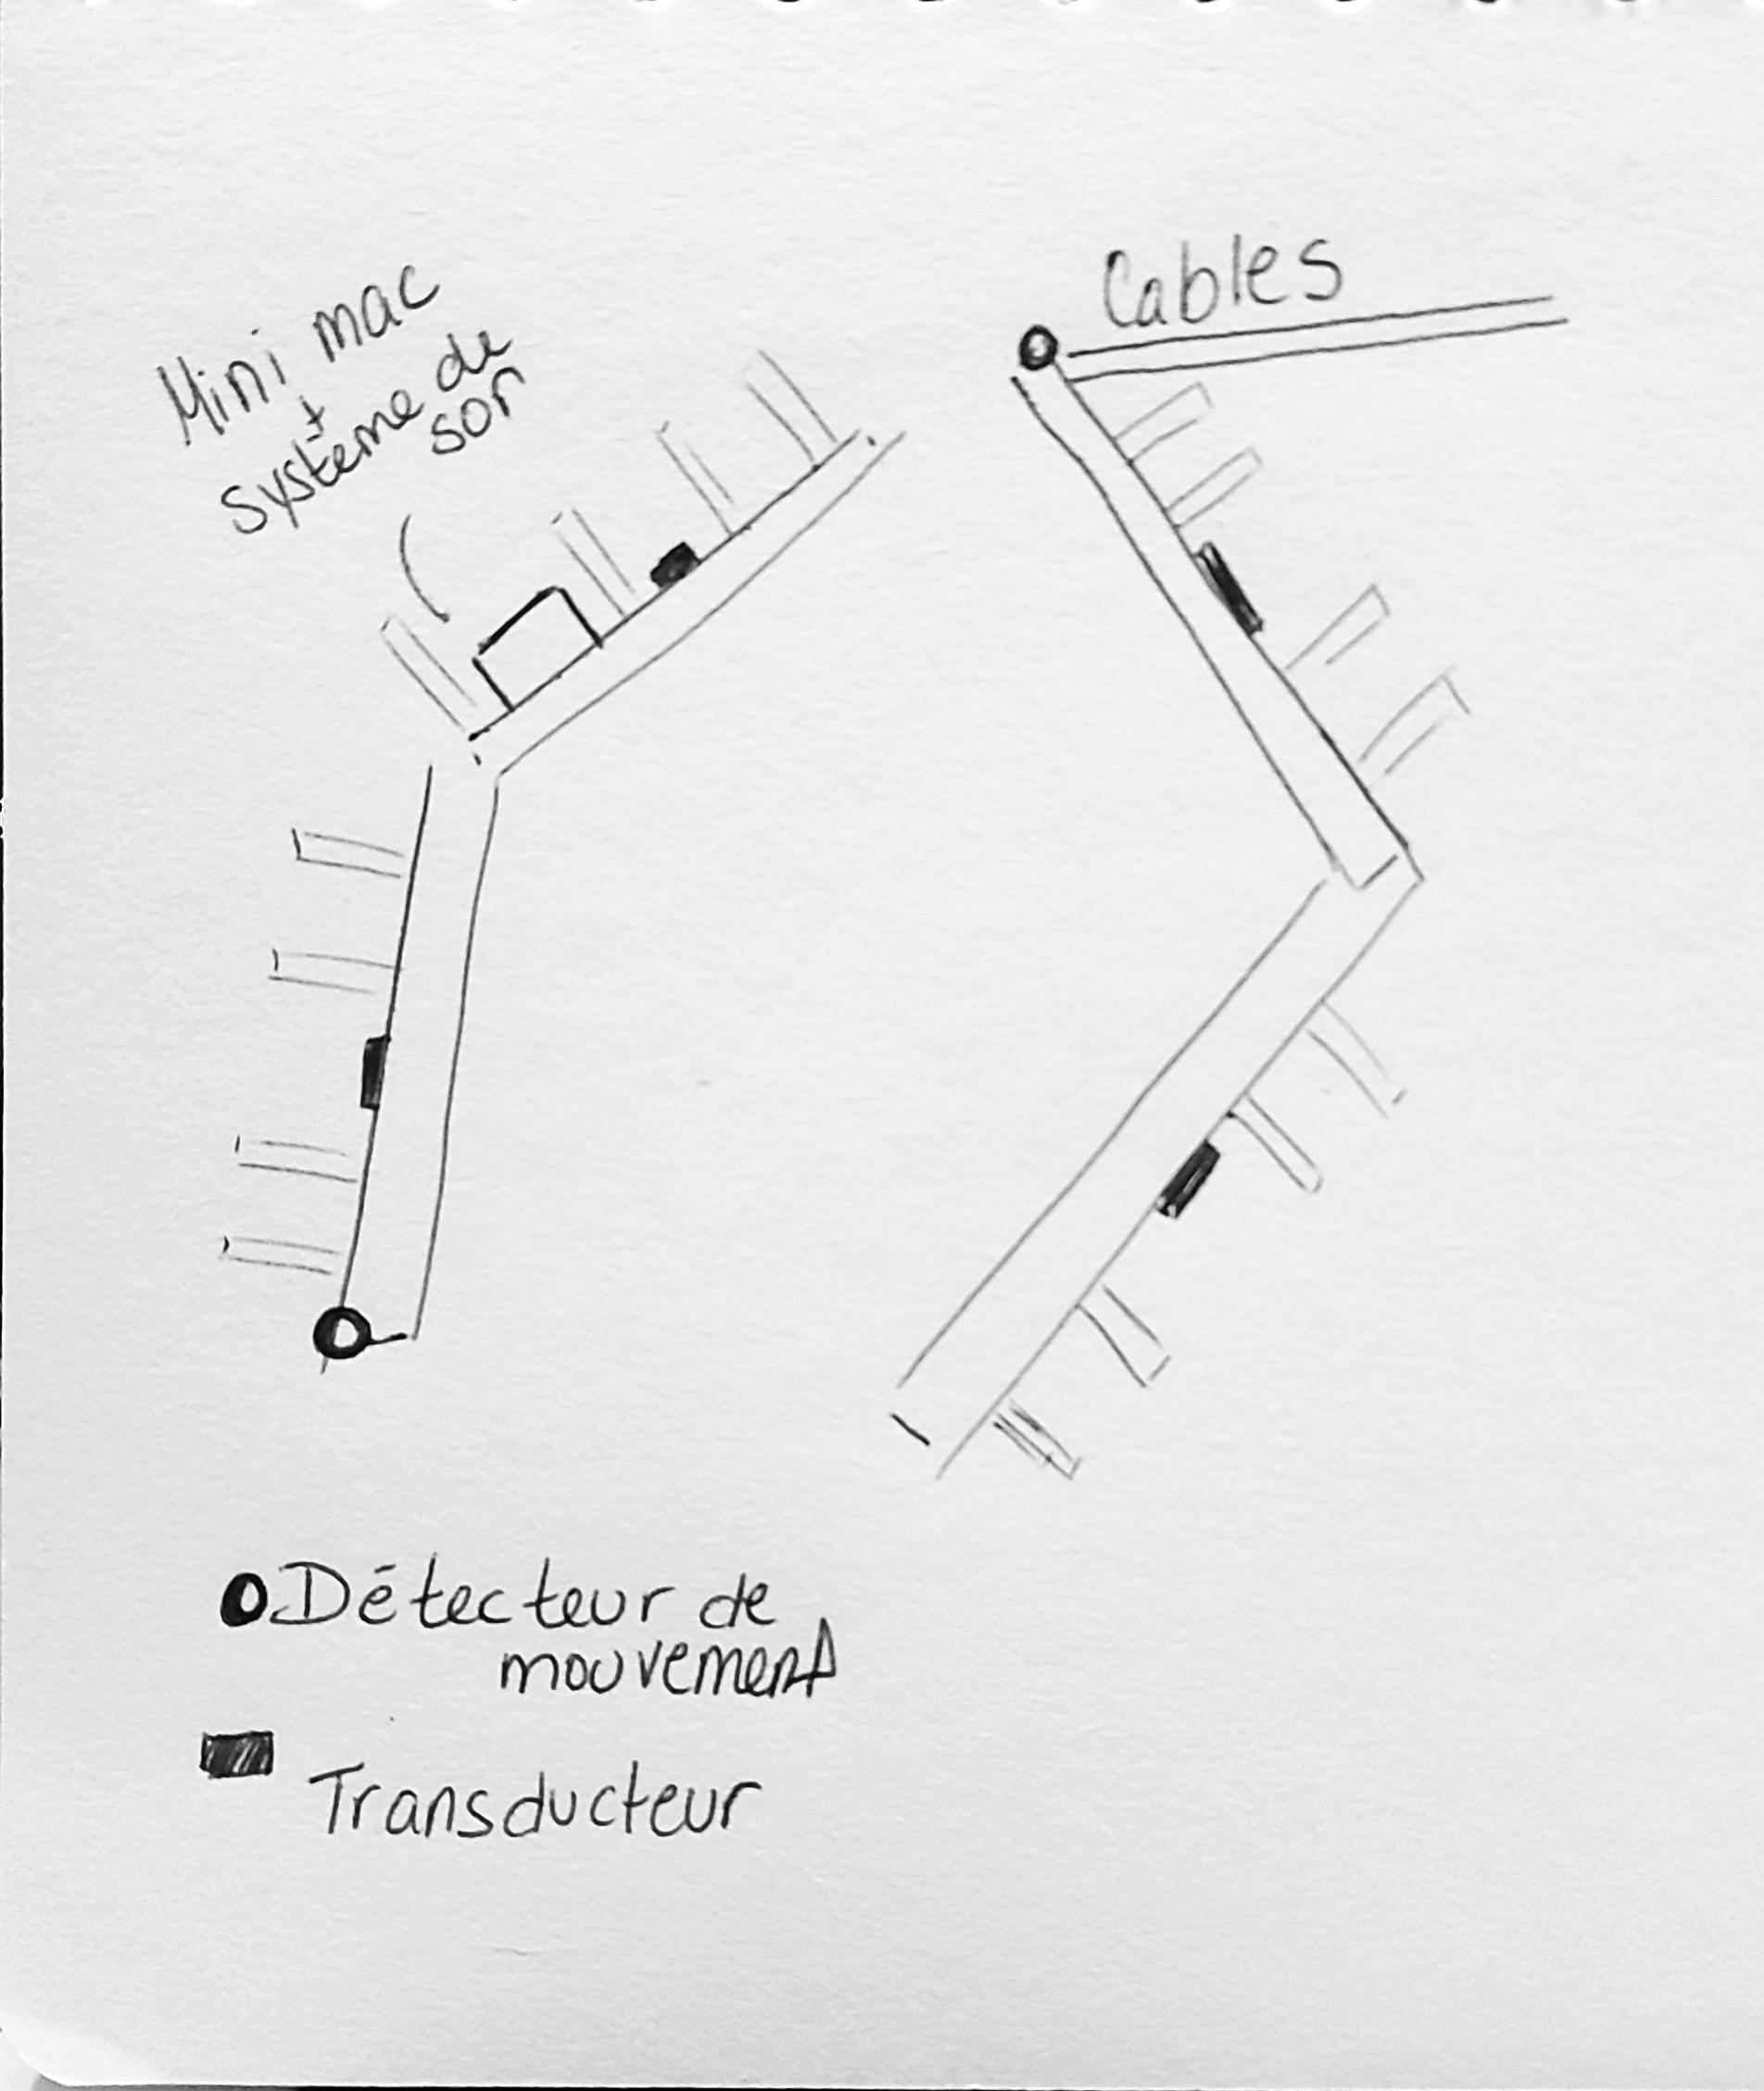 Mini mac
+
système de
son
Cables
Détecteur de
mouvement
Transducteur